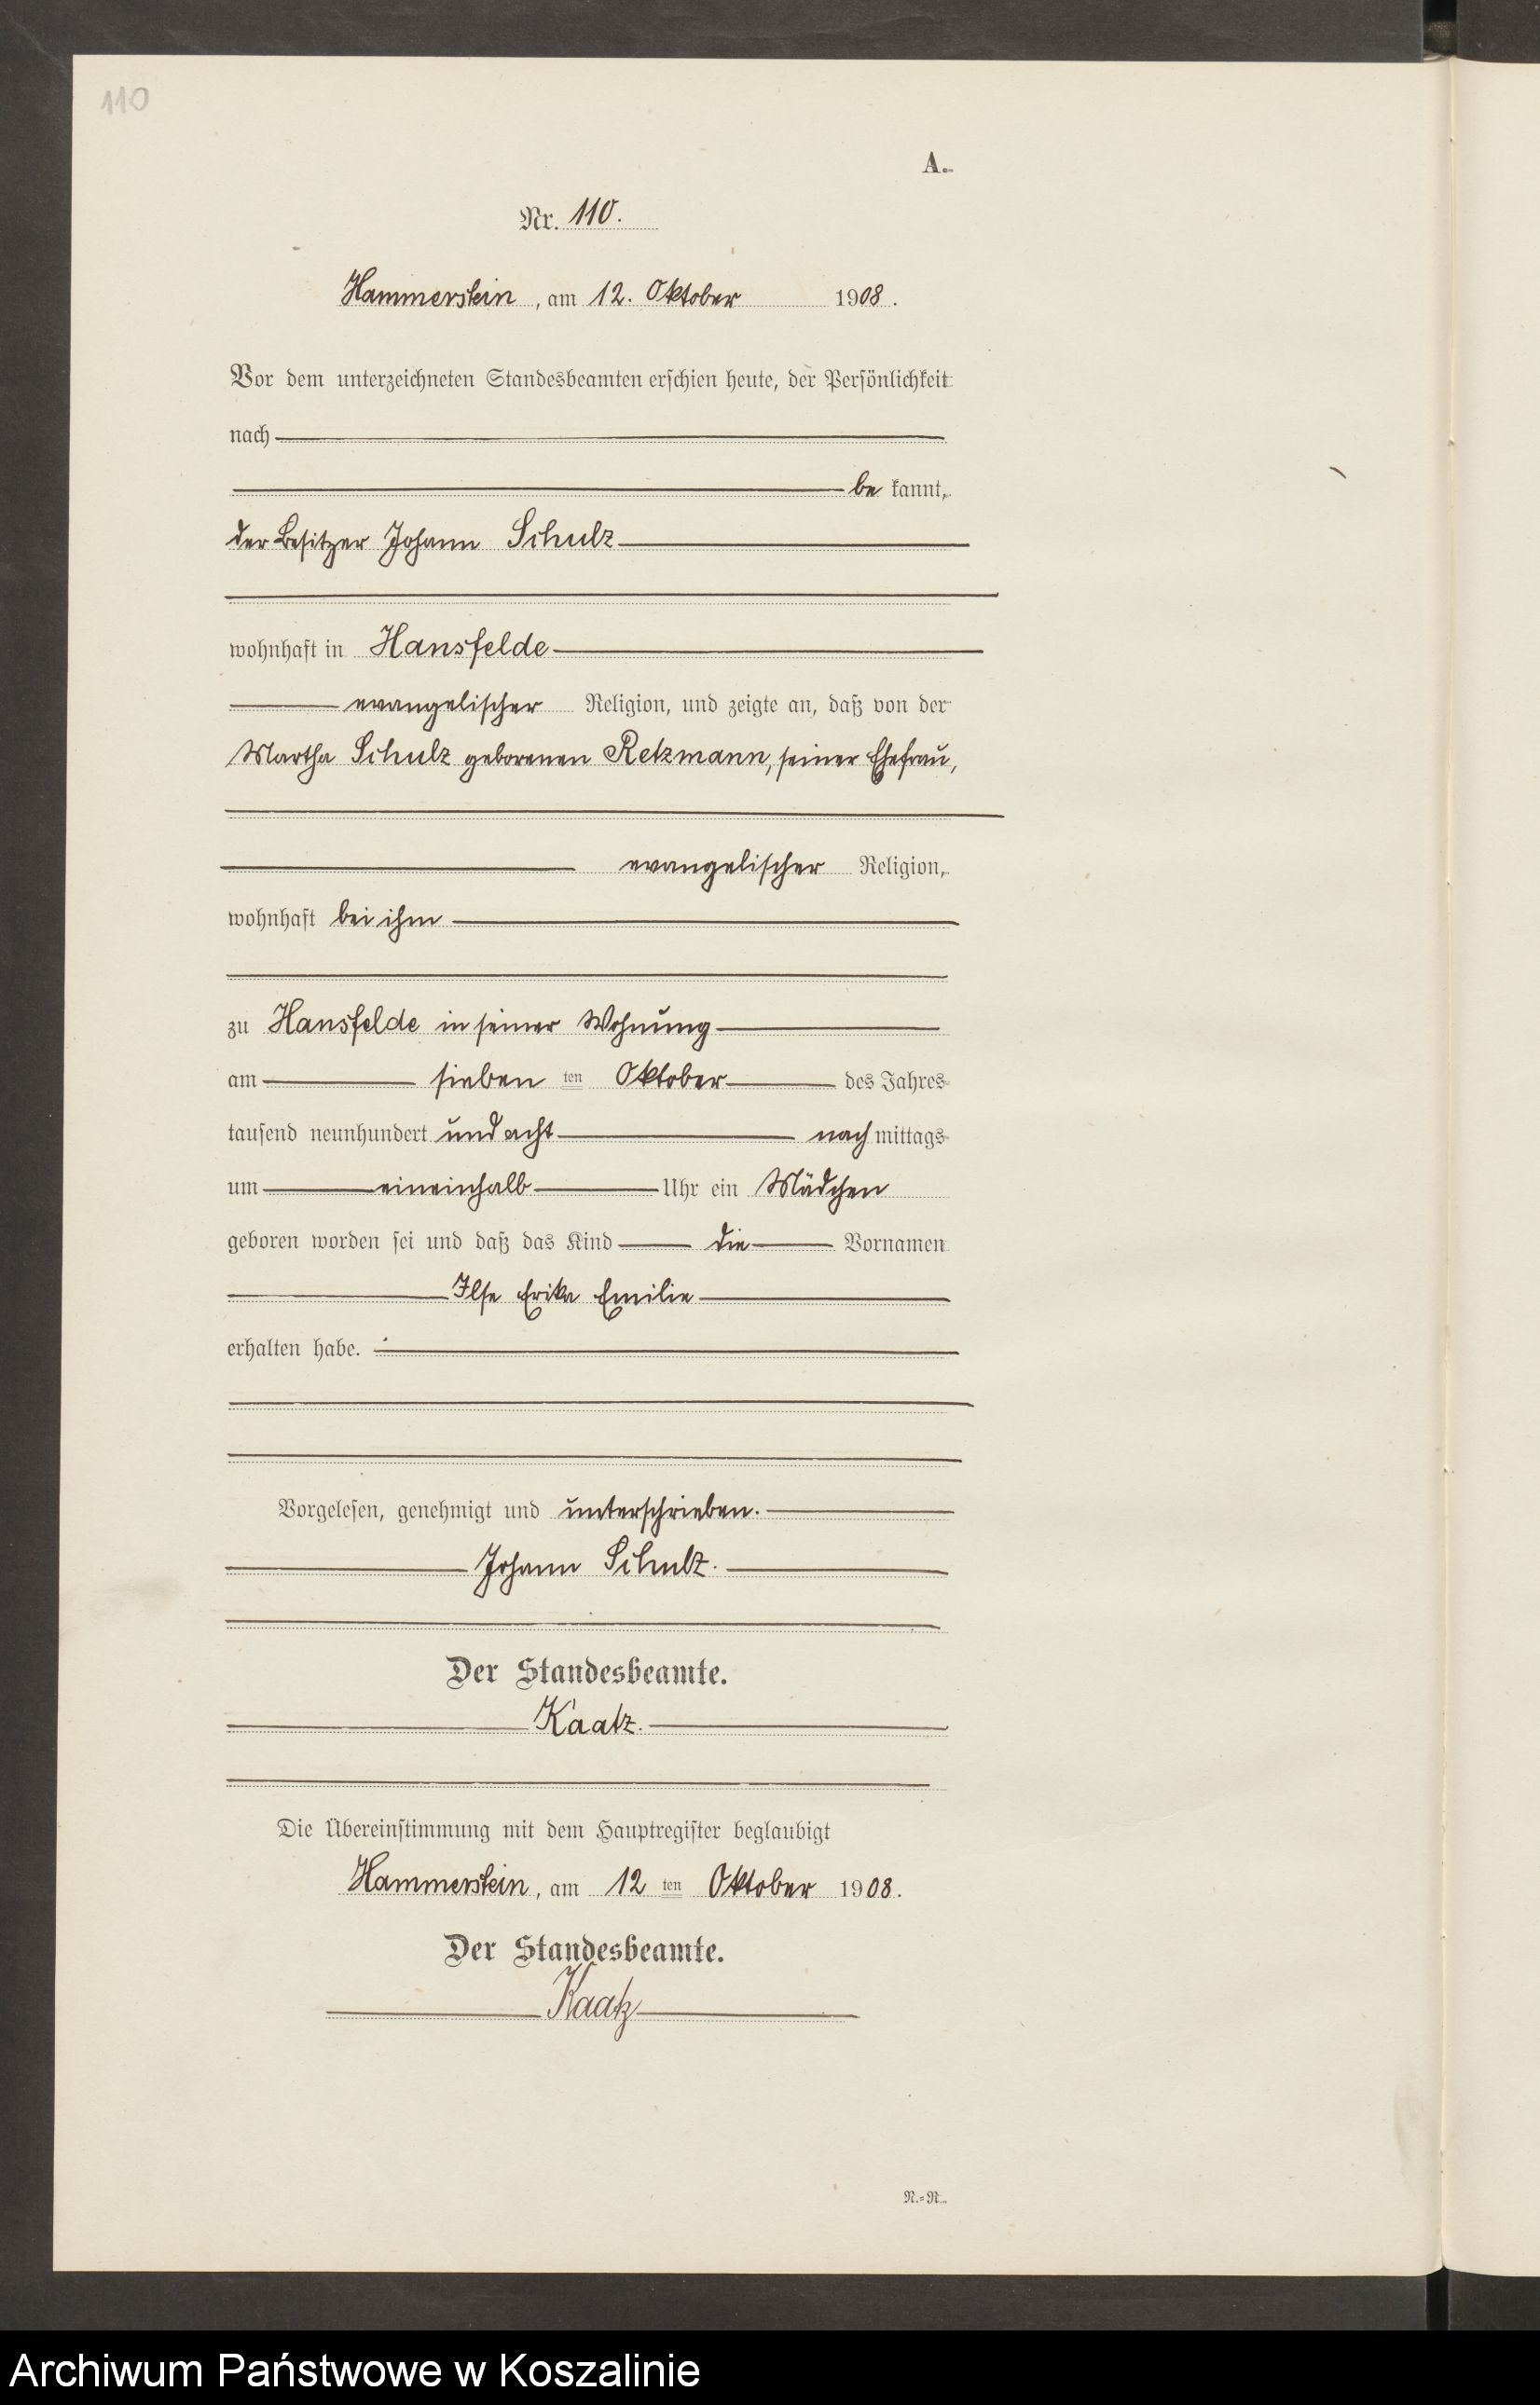 110
A.
Nr. 110.
Hammerstein, am 12. Oktober 1908.
Vor dem unterzeichneten Standesbeamten erschien heute, der Persönlichkeit
nach
be kannt,
der Besitzer Johann Schulz
wohnhaft in Hansfelde
evangelischer Religion, und zeigte an, daß von der
Martha Schulz geborenen Retzmann, seiner Ehefrau,
evangelischer Religion,
wohnhaft bei ihm
zu Hansfelde in seiner Wohnung
am sieben ten Oktober des Jahres
tausend neunhundert und acht nach mittags
um eineinhalb Uhr ein Mädchen
geboren worden sei und daß das Kind die Vornamen
Ilse Erika Emilie
erhalten habe.
Vorgelesen, genehmigt und unterschrieben.
Johann Schulz.
Der Standesbeamte.
Kaatz.
Die Übereinstimmung mit dem Hauptregister beglaubigt
Hammerstein, am 12 ten Oktober 1908.
Der Standesbeamte.
Kaatz
N.=R.
Archiwum Państwowe w Koszalinie